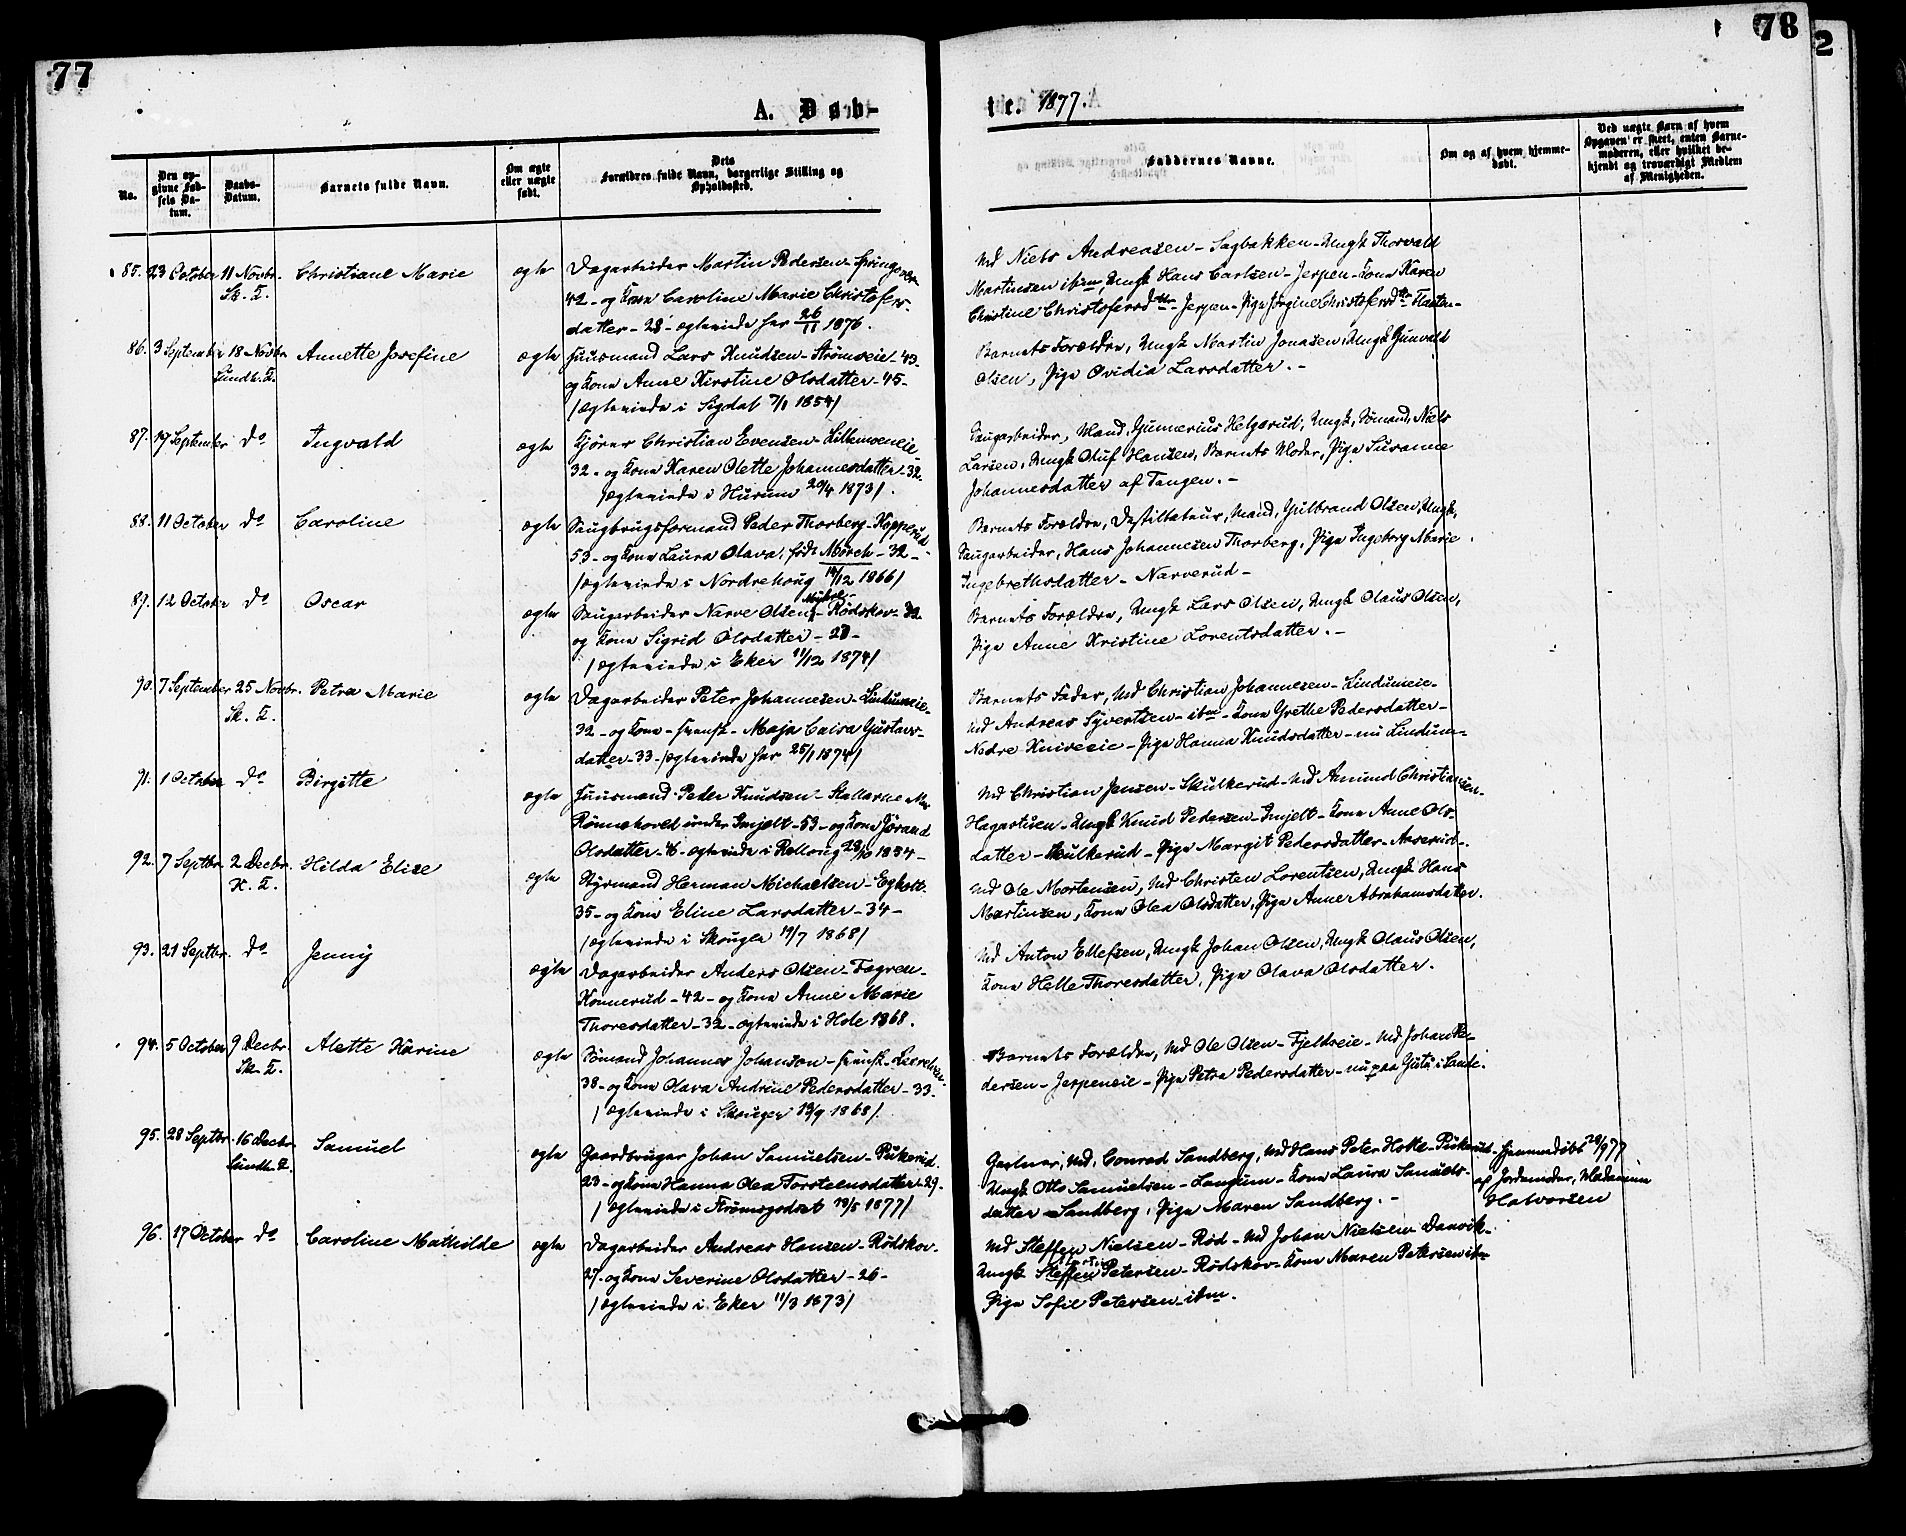 77
78
2
A. Døb-
te. 1877.
No.
Den op-
givne Fød-
sels Da-
tum.
Daabs-
Datum.
Barnets fulde Navn.
Om ægte
eller uægte
født.
Dets
Forældres fulde Navn, borgerlige Stilling og
Opholdssted.
Faddernes Navne.
Om og af hvem hjemme-
døbt.
Ved uægte Børn af hvem
Opgaven er skeet, enten Barne-
moderen, eller hvilket be-
kjendt og troværdigt Medlem
af Menigheden.
85. 23 October 11 Novbr. Christiane Marie ægte Dagarbeider Martin Pedersen-
Sk. K. 42 - og Kone Caroline Marie Christofers-
datter - 28 - ægteviede her 26/11 1876.
Md Niels Andreasen - Sagbakken - Ungk Thorvald
Martinsen ibm, Ungk Hans Carlsen - Jerpen - Kone Karen
Christine Christofersdtr - Jerpen - Pige Jørgine Christofersdtr
86. 3 September 18 Novbr. Annette Josefine ægte Huusmand Lars Knudsen - Strømseie - 43
Lundh. K. og Kone Anne Kirstine Olsdatter - 45 -
/ægteviede i Sigdal 7/1 1854/
Barnets Forældre, Ungk Martin Jonasen, Ungk Gunvald
Olsen, Pige Ovidia Larsdatter. -
87. 19 September do Ingvald ægte Kjører Christian Evensen -
32 - og Kone Karen Olette Johannesdatter - 32.
/ægteviede i Hurum 20/4 1873/.
Saugarbeider, Mand, Gunnerius Helgerud, Ungk, Sømand, Niels
Larsen, Ungk Oluf Hansen, Barnets Moder, Pige Susanne
Johannesdatter af Tangen. -
88. 11 October do Caroline ægte Saugbrugsformand Peder Thorberg - Kopperud
53 - og Kone Laura Olava, født Mørch - 32 -
/ægteviede i Norderhoug 14/12 1866/
Barnets Forældre, Destillateur, Mand, Gulbrand Olsen, Ungk,
Saugarbeider, Hans Johannesen Thorberg, Pige Ingeborg Marie
Ingebrethsdatter - Narverud -
89. 12 October do Oscar ægte Saugarbeider Narve Olsen - Rødskov - 32
og Kone Sigrid Olsdatter - 28 -
/ægteviede i Eker 11/12 1874/
Barnets Forældre, Ungk Lars Olsen, Ungk Olaus Olsen,
Pige Anne Kristine Lorentsdatter. -
90. 7 September 25 Novbr. Petra Marie ægte Dagarbeider Peter Johannesen - Lindumeie -
Sk. K. 32 - og Kone - svensk - Maja Caisa Gustavs-
datter - 33 - /ægteviede her 25/1 1874/
Barnets Fader, Md Christian Johannesen - Lindumeie -
Md Andreas Syvertsen - ibm - Kone Grethe Pedersdatter -
Nedre Kniveeie - Pige Hanna Knudsdatter - nu Lindum -
91. 1 October do Birgitte ægte Huusmand Peder Knudsen -
under Imjelt - 53 - og Kone Jørand
Olsdatter - 46 - ægteviede i Rollaug 28/10 1854 -
Md Christian Jensen - Skulkerud - Md Amund Christiansen -
Hagastuen - Ungk Knud Pedersen - Imjelt - Kone Anne Ols-
datter - Skulkerud - Pige Margit Pedersdatter - Aaserud -
92. 7 Septbr. 2 Decbr. Hilda Elise ægte Styrmand Herman Michaelsen - Egholt.
K. K. 35 - og Kone Eline Larsdatter - 34 -
/ægteviede i Skouger 19/7 1868/
Md Ole Mortensen, Md Christen Lorentsen, Ungk Hans
Martinsen, Kone Olea Olsdatter, Pige Anne Abrahamsdatter.
93. 21 Septbr. do Jenny ægte Dagarbeider Anders Olsen - Fagren-
Konnerud - 42 - og Kone Anne Marie
Thoresdatter - 32 - ægteviede i Hole 1868.
Md Anton Ellefsen, Ungk Johan Olsen, Ungk Olaus Olsen,
Kone Helle Thoresdatter, Pige Olava Olsdatter.
94. 5 October 9 Decbr. Alette Karine ægte Sømand Johannes Johanson - svensk - Leirelven.
Sk. K. 38 - og Kone Olava Andrine Pedersdatter - 33 -
/ægteviede i Skouger 13/9 1868/.
Barnets Forældre, Md Ole Olsen - Fjeldeie - Md Johan Pe-
dersen - Jerpeneie - Pige Petra Pedersdatter - nu paa i Sande.
95. 28 Septbr. 16 Decbr. Samuel ægte Gaardbruger Johan Samuelsen - Pukerud.
Lundh. K. 23 - og Kone Hanna Olea Torsteensdatter - 29 -
/ægteviede i Strømsgodset 13/5 1877/
Gartner, Md, Conrad Sandberg, Md Hans Peter Holte - Pukerud -
Ungk Otto Samuelsen - Langum - Kone Laura Samuels-
datter - Sandberg, Pige Maren Sandberg. -
Hjemmedøbt 28/9 77
af Jordemoder, Madamm
Halvorsen
96. 17 October do Caroline Mathilde ægte Dagarbeider Andreas Hansen - Rødskov -
27 - og Kone Severine Olsdatter - 26 -
/ægteviede i Eker 11/3 1873/
Md Steffen Nielsen - Rød - Md Johan Nielsen Danvik -
Ungk Steffen Petersen - Rødskov - Kone Maren Petersen ibm
Pige Sofie Petersen ibm.